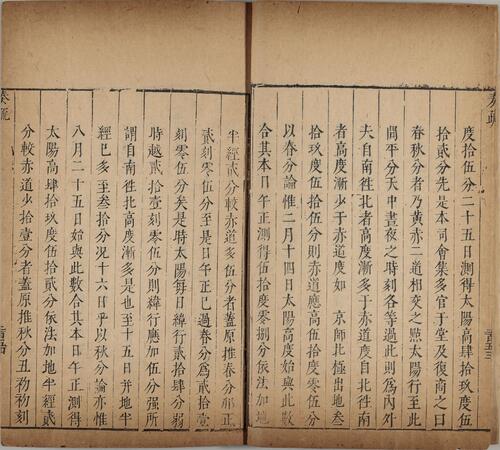 度拾伍分二十五日測得太陽高肆拾玖度伍
拾貳分先是本司會集多官于堂及復南之曰
春秋分者乃黃赤二道相交之㸃太陽行至此
間平分天中晝夜之時刻各等過此則爲內外
夫自南徃北者高度漸多于赤道度自北徃南
者高度漸少于赤道度如 京師北極出地叁
拾玖度伍拾伍分則赤道應高伍拾度零伍分
以春分論惟二月十四日太陽高度始與此數
合其本日午正測得伍拾度零捌分依法加地
半經貳分較赤道多伍分者蓋原推春分卯正
貳刻零伍分至是日午正已過春分爲貳拾壹
刻零伍分矣是時太陽每日緯行貳拾肆分弱
時越貳拾壹刻零伍分則緯行應加伍分强所
謂自南徃北高度漸多是也至十五日并地半
經已多至叁拾分况十六日乎以秋分論亦惟
八月二十五日始與此數合其本日午正測得
太陽高肆拾玖度伍拾貳分依法加地半經貳
分較赤道少拾壹分者蓋原推秋分丑初初刻
奏疏
奏疏